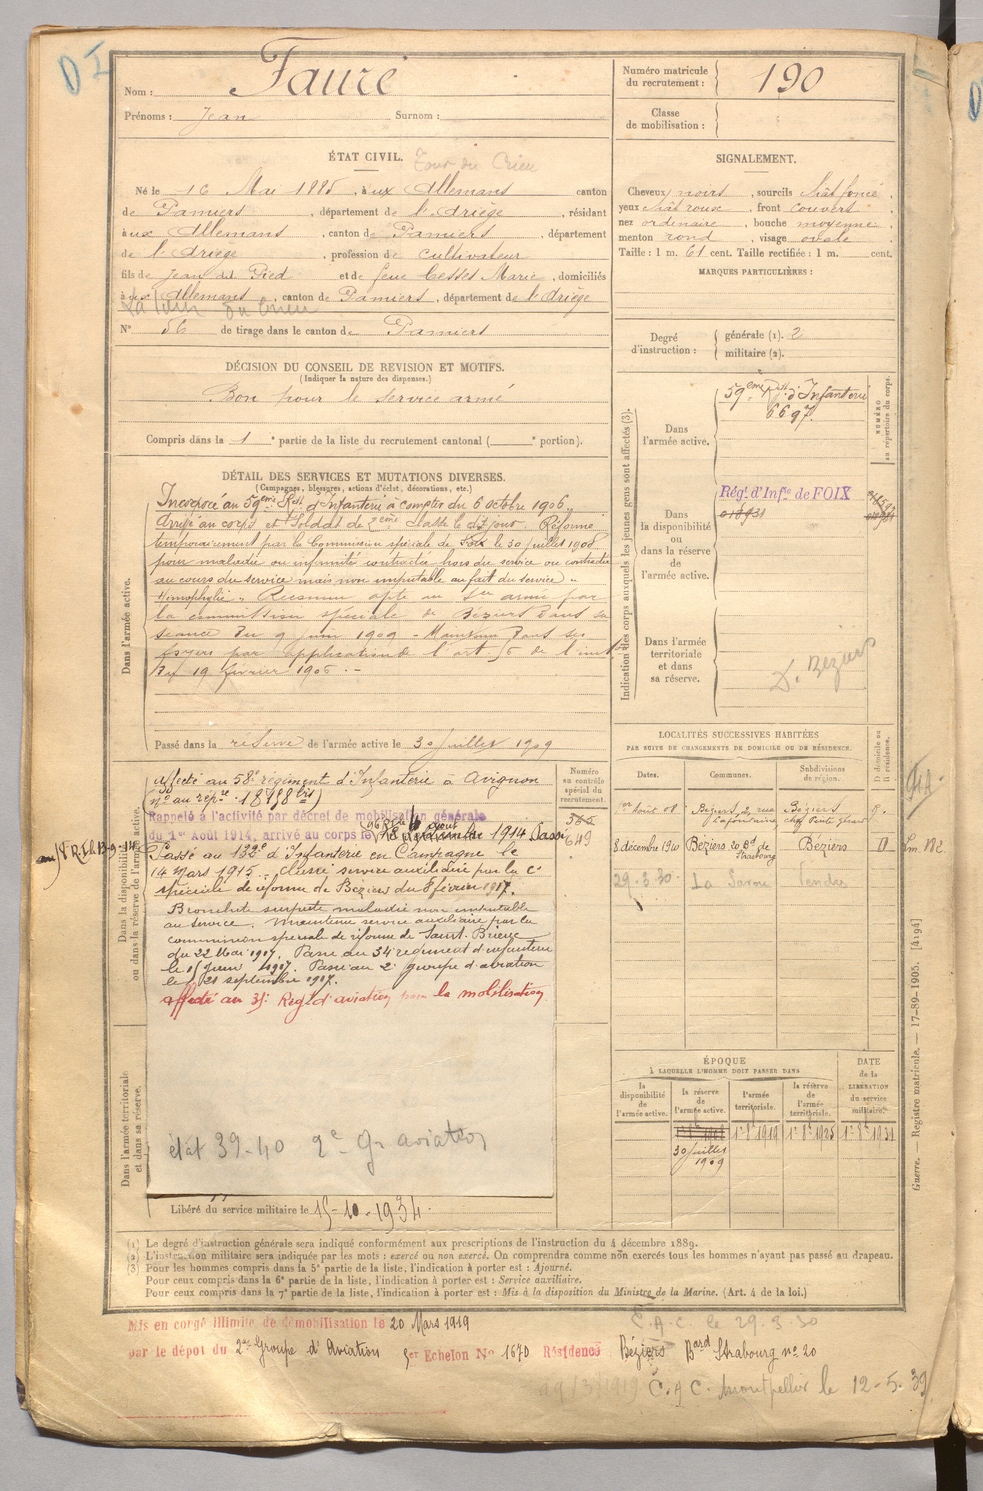 D I
Nom : Fauré
Prénoms : Jean Surnom :
Numéro matricule du recrutement : 190
Classe de mobilisation :
ÉTAT CIVIL. Tour du Crieu
Né le 16 Mai 1885, à ux Allemans canton
de Pamiers, département de l'Ariège, résidant
à ux Allemans, canton de Pamiers, département
de l'Ariège, profession de cultivateur
fils de Jean et de feue Cesses Marie, domiciliés
à ux Allemans, canton de Pamiers, département de l'Ariège
La Tour du Crieu
N° 56 de tirage dans le canton de Pamiers
SIGNALEMENT.
Cheveux noirs, sourcils chât foncé,
yeux chât roux, front couvert,
nez ordinaire, bouche moyenne,
menton rond, visage ovale
Taille : 1 m. 61 cent. Taille rectifiée : 1 m. cent.
MARQUES PARTICULIÈRES :
Degré d'instruction : générale (1). 2
militaire (2).
DÉCISION DU CONSEIL DE REVISION ET MOTIFS.
(Indiquer la nature des dispenses.)
Bon pour le service armé
Compris dans la 1e partie de la liste du recrutement cantonal ( e portion).
DÉTAIL DES SERVICES ET MUTATIONS DIVERSES.
(Campagnes, blessures, actions d'éclat, décorations, etc.)
Dans l'armée active.
Incorporé au 59eme Rgt d'Infanterie à compter du 6 octobre 1906,
Arrivé au corps et Soldat de 2eme classe le dt jour. Réformé
temporairement par la Commission spéciale de Foix le 30 juillet 1908
pour maladie ou infirmité contractée hors du service ou contractée
au cours du service mais non imputable au fait du service "
Hémophylie". Reconnu apte au Sce armé par
la commission spéciale de Béziers dans sa
séance du 9 juin 1909 - Maintenu dans ses
foyers par application de l'art. 5 de l'inst
du 19 février 1906. -
Passé dans la réserve de l'armée active le 30 Juillet 1909
Indication des corps auxquels les jeunes gens sont affectés (3).
NUMÉRO au répertoire du corps.
Dans l'armée active.
59eme Rgt d'Infanterie
6697
Dans la disponibilité ou dans la réserve de l'armée active.
Régt d'Infie de FOIX
018931
Dans l'armée territoriale et dans sa réserve.
D. Béziers
Dans la disponibilité ou dans la réserve de l'armée active.
Affecté au 58e régiment d'Infanterie à Avignon
(no au répre 18188 bis)
Rappelé à l'activité par décret de mobilisation générale
du 1er Août 1914, arrivé au corps le 1914 Passé
au 18 R.I. le 13-9-14
Passé au 122e d'Infanterie en Campagne le
14 Mars 1915. Classé service auxiliaire par la Con
spéciale de réforme de Béziers du 8 février 1917.
Bronchite suspecte maladie non imputable
au service. Maintenu service auxiliaire par la
commission spéciale de réforme de Saint-Brieuc
du 22 Mai 1917. Passé au 34e régiment d'infanterie
le 15 juin 1917. Passé au 2e groupe d'aviation
le 21 septembre 1917.
affecté au 31e Régt d'aviation pour la mobilisation
Numéro au contrôle spécial du recrutement.
649
Dans l'armée territoriale et dans sa réserve.
état 39-40 2e Gr aviation
Libéré du service militaire le 15-10-1934.
LOCALITÉS SUCCESSIVES HABITÉES
PAR SUITE DE CHANGEMENTS DE DOMICILE OU DE RÉSIDENCE.
Dates. Communes. Subdivisions de région. D domicile ou R résidence.
1er août 08 Béziers, 2, rue Lafontaine, Béziers R.
8 décembre 1910 Béziers 20 Bd de Strasbourg Béziers D
29-3-30 Vendres
ÉPOQUE
À LAQUELLE L'HOMME DOIT PASSER DANS
la disponibilité de l'armée active. la réserve de l'armée active. l'armée territoriale. la réserve de l'armée territoriale. DATE de la LIBÉRATION du service militaire.
1er 8e 1908 1er 8e 1919 1er 8e 1925 1er 8e 1931
30 juillet 1909
Guerre. — Registre matricule. — 17-89-1905. [4194]
(1) Le degré d'instruction générale sera indiqué conformément aux prescriptions de l'instruction du 4 décembre 1889.
(2) L'instruction militaire sera indiquée par les mots : exercé ou non exercé. On comprendra comme non exercés tous les hommes n'ayant pas passé au drapeau.
(3) Pour les hommes compris dans la 5e partie de la liste, l'indication à porter est : Ajourné.
Pour ceux compris dans la 6e partie de la liste, l'indication à porter est : Service auxiliaire.
Pour ceux compris dans la 7e partie de la liste, l'indication à porter est : Mis à la disposition du Ministre de la Marine. (Art. 4 de la loi.)
Mis en congé illimité de démobilisation le 20 Mars 1919 C.A.C. le 29.3.30
par le dépôt du 2me Groupe d'Aviation 5er Echelon No 1670 Résidence Béziers Bard Strabourg no 20
29/3/1919 C.A.C. Montpellier le 12-5.39